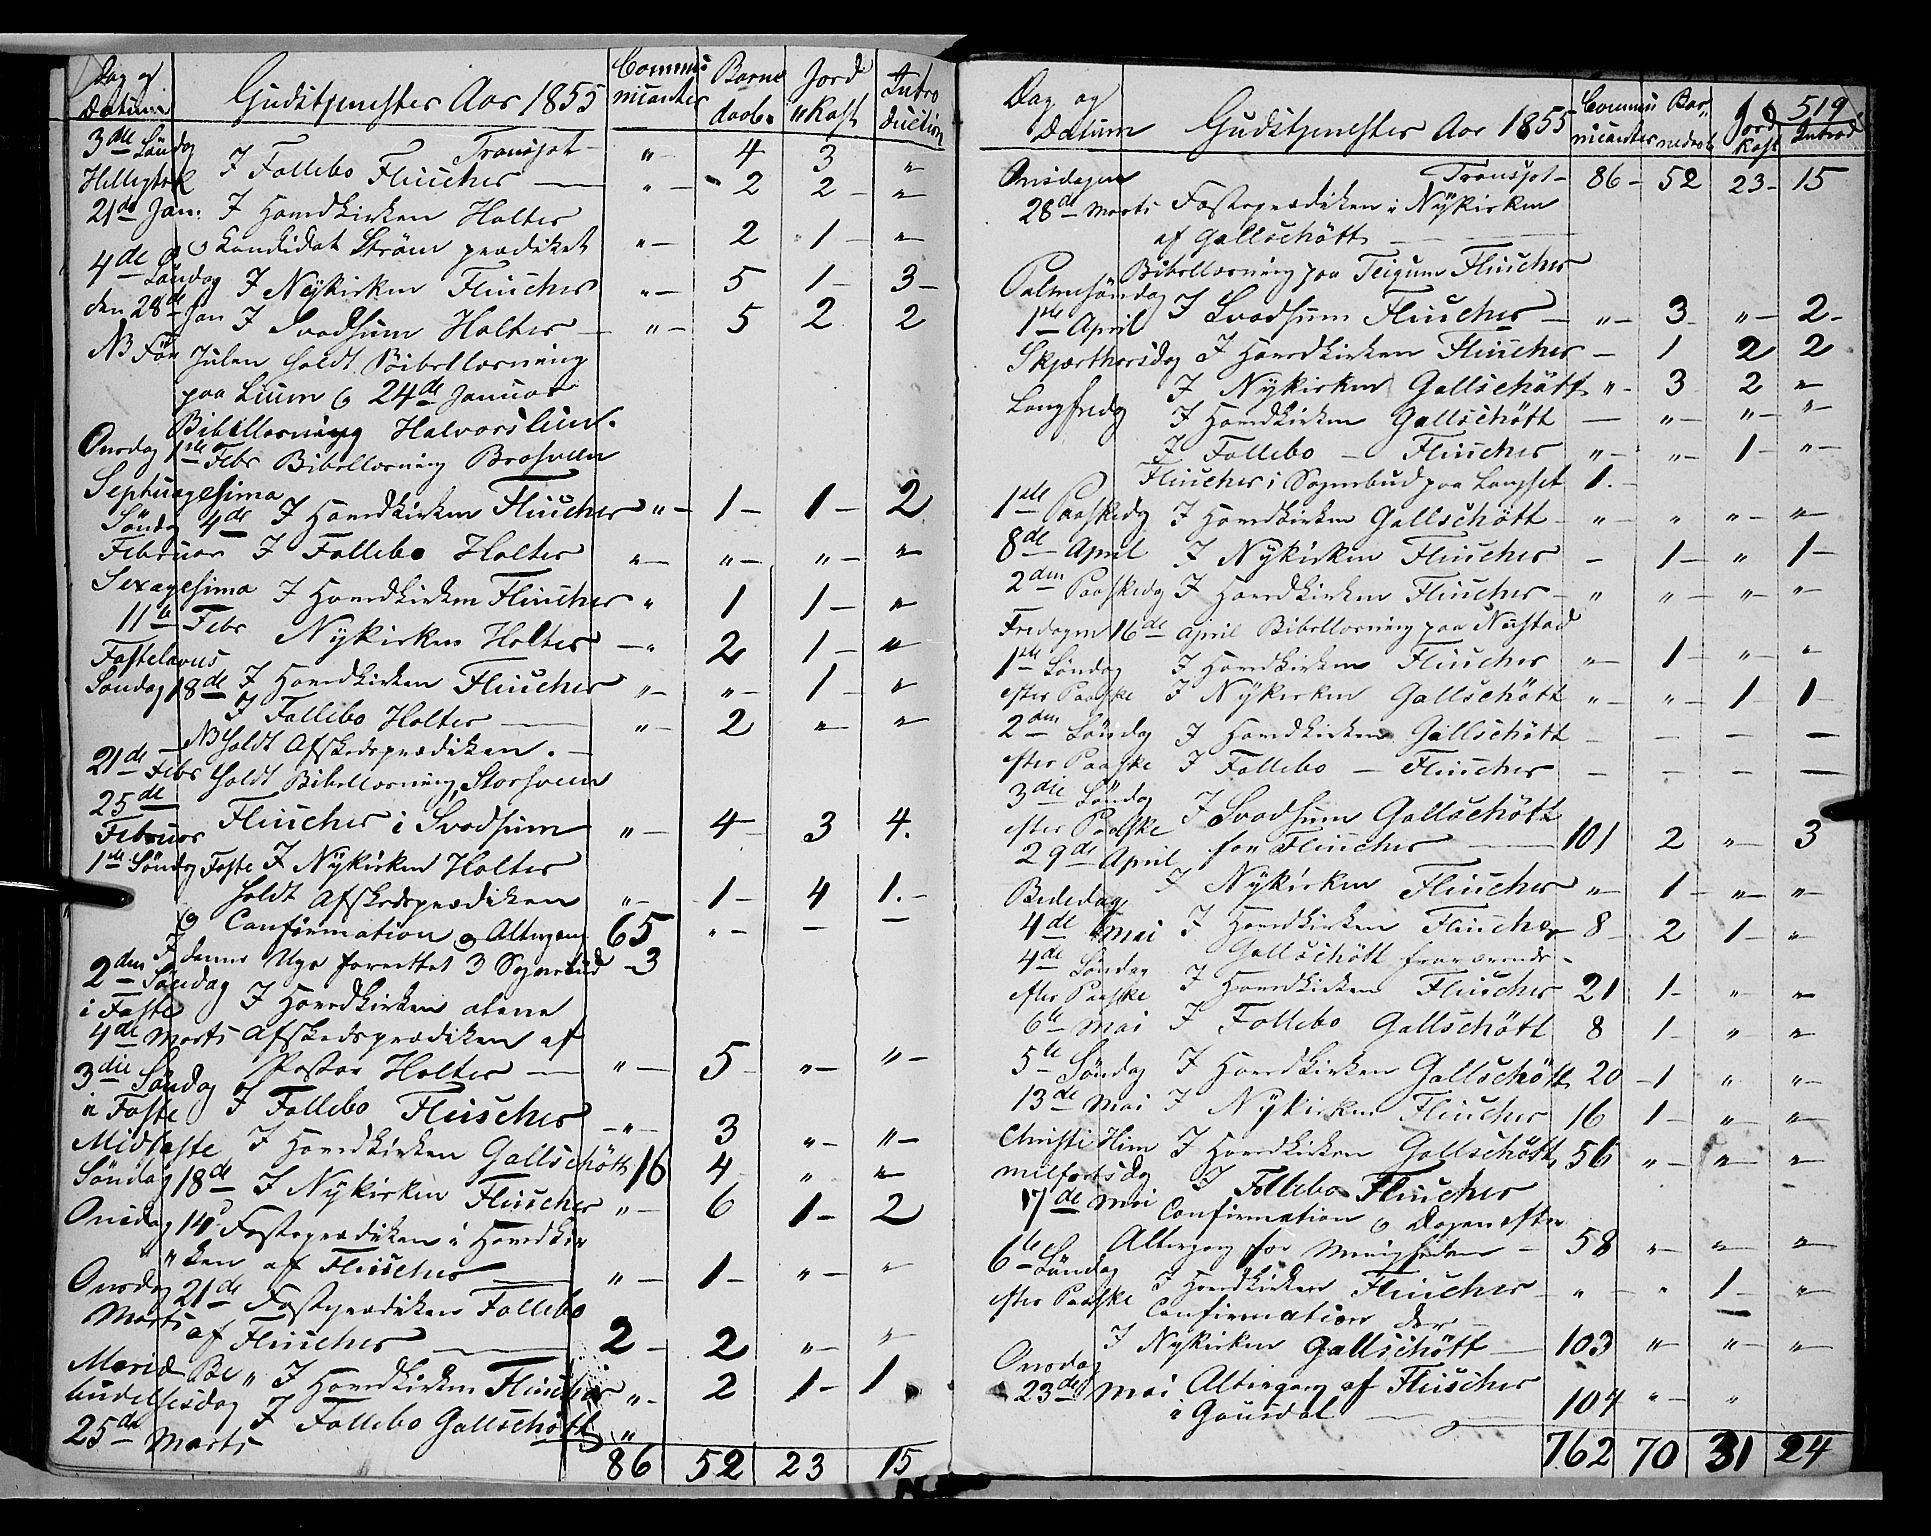 Dag og Datum Gudstjenester Aar 1855 Communicanter Barnedaab Jord Kast Introduction
3die Søndag Transpt „ 4 3 „
Helligtrek I Follebo Fleischer „ 2 2 „
21de Jan: I Hovedkirken Holter
Kandidat Strøm prædiket „ 2 1 „
4de Søndag I Nykirken Fleischer „ 5 1 3
den 28de Jan I Svadsum Holter „ 5 2 2
NB Før Julen holdt Bibellæsning
paa Lium 24de Januar
Bibellæsning Halvorslien.
Onsdag Febr Bibellæsning Brasveen
Septuagesima
Søndag 4de I Hovedkirken Fleischer „ 1 1 2
Februar I Follebo Holter „ „ „ „
Sexagesima I Hovedkirken Fleischer „ 1 1 „
11te Febr Nykirken Holter „ 2 1 „
Fastelavns
Søndag 18de I Hovedkirken Fleischer „ „ 1 „
I Follebo Holter „ 2 „ „
NB holdt Afskedsprædiken.
21de Febr holdt Bibellæsning Storsveen
25de
Februar Fleischer i Svadsum „ 4 3 4.
1ste Søndag Faste I Nykirken Holter
holdt Afskedsprædiken „ 1 4 1.
Confirmation og Altergang 65 „ – –
I denne Uge forrettet 3 Sognebud 3
2den Søndag
i Faste I Hovedkirken alene
4de Marts Afskedsprædiken af
Pastor Holter „ 5 „ „
3die Søndag
i Faste I Follebo Fleischer „ 3 „ „
Midfaste I Hovedkirken Gallschött 16 4 „ „
Søndag 18de I Nykirken Fleischer „ 6 1 2
Onsdag 14de Fasteprædiken i Hovedkir
„ken af Fleischer „ 1 „ „
Onsdag 21de Fasteprædiken Follebo
Marts af Fleischer 2 2 „ „
Mariæ Be„ I Hovedkirken Fleischer „ 2 1 1
budelsesdag I Follebo Gallschött „
25de Marts
86 52 23 15
519
Dag og Datum Gudstjenester Aar 1855 Communicanter Barnedaab Jord Kast Introd
Onsdagen Transpt 86 52 23 15
28de Marts Fasteprædiken i Nykirken
af Gallschött
Bibellæsning paa Teigum Fleischer
Palmesøndag
1ste April I Svadsum Fleischer „ 3 „ 2
Skjærthorsdag I Hovedkirken Fleischer – 1 2 2
I Nykirken Gallschött „ 3 2 „
Langfredag I Hovedkirken Gallschött – „ „ „
I Follebo Fleischer „ „ 1 „
Fleischer i Sognebud paa Langset 1.
1ste Paaskedag I Hovedkirken Gallschött „ „ „ „
8de April I Nykirken Fleischer – 1 „ 1
2den Paaskedag I Hovedkirken Fleischer „ „ „ „
Fredagen 16de April Bibellæsning paa Nustad
1ste Søndag I Hovedkirken Fleischer „ 1 „ „
efter Paaske I Nykirken Gallschött „ „ 1 1
2den Søndag I Hovedkirken Gallschött – – – –
efter Paaske I Follebo – Fleischer – – – –
3die Søndag
efter Paaske I Svadsum Gallschött
29de April for Fleischer 101 2 „ 3
Bededag I Nykirken Fleischer „ 1 „ „
4de Mai I Hovedkirken Fleischer 8 2 1 „
Gallschött fraværende
4de Søndag
efter Paaske I Hovedkirken Fleischer 21 1 „ „
6te Mai I Follebo Gallschött 8 1 „ „
5te Søndag I Hovedkirken Gallschött 20 1 „ „
13de Mai I Nykirken Fleischer 16 1 „ „
Christi Him I Hovedkirken Gallschött 56 „ „ „
melfartsdag I Follebo Fleischer
17de Mai Confirmation og Dagen efter
Altergang for Menigheden 58 „ „ „
6te Søndag
efter Paaske I Hovedkirken Fleischer „ „ 1 „
Confirmation der
I Nykirken Gallschött 103 „ „ „
Onsdag
23de Mai Altergang af Fleischer
i Gausdal 104 „ „
762 70 31 24